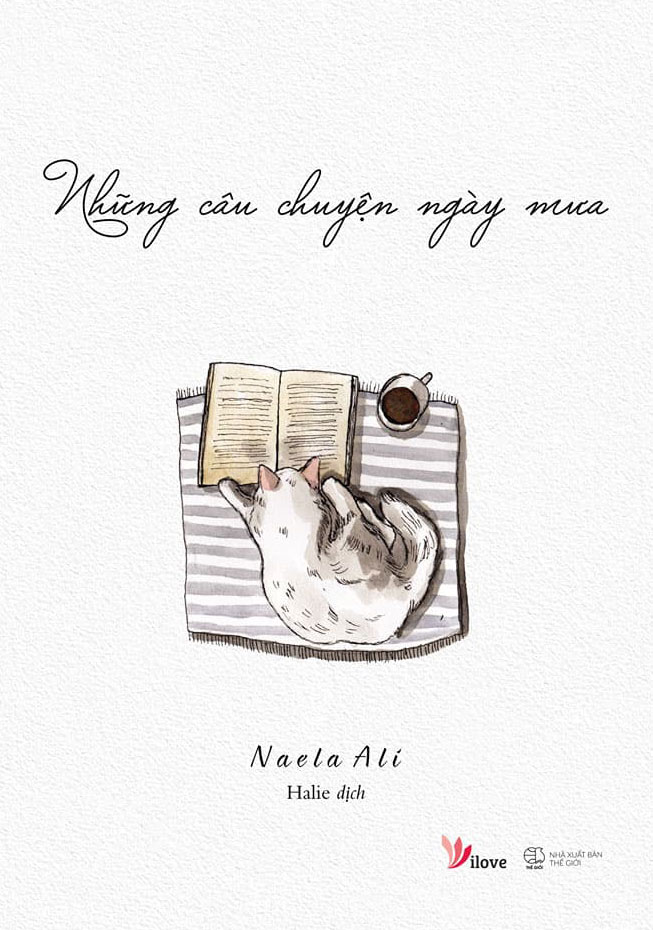 Những câu chuyện ngày mưa
Naela Ali
Halie dịch
ilove
THẾ GIỚI
NHÀ XUẤT BẢN
THẾ GIỚI